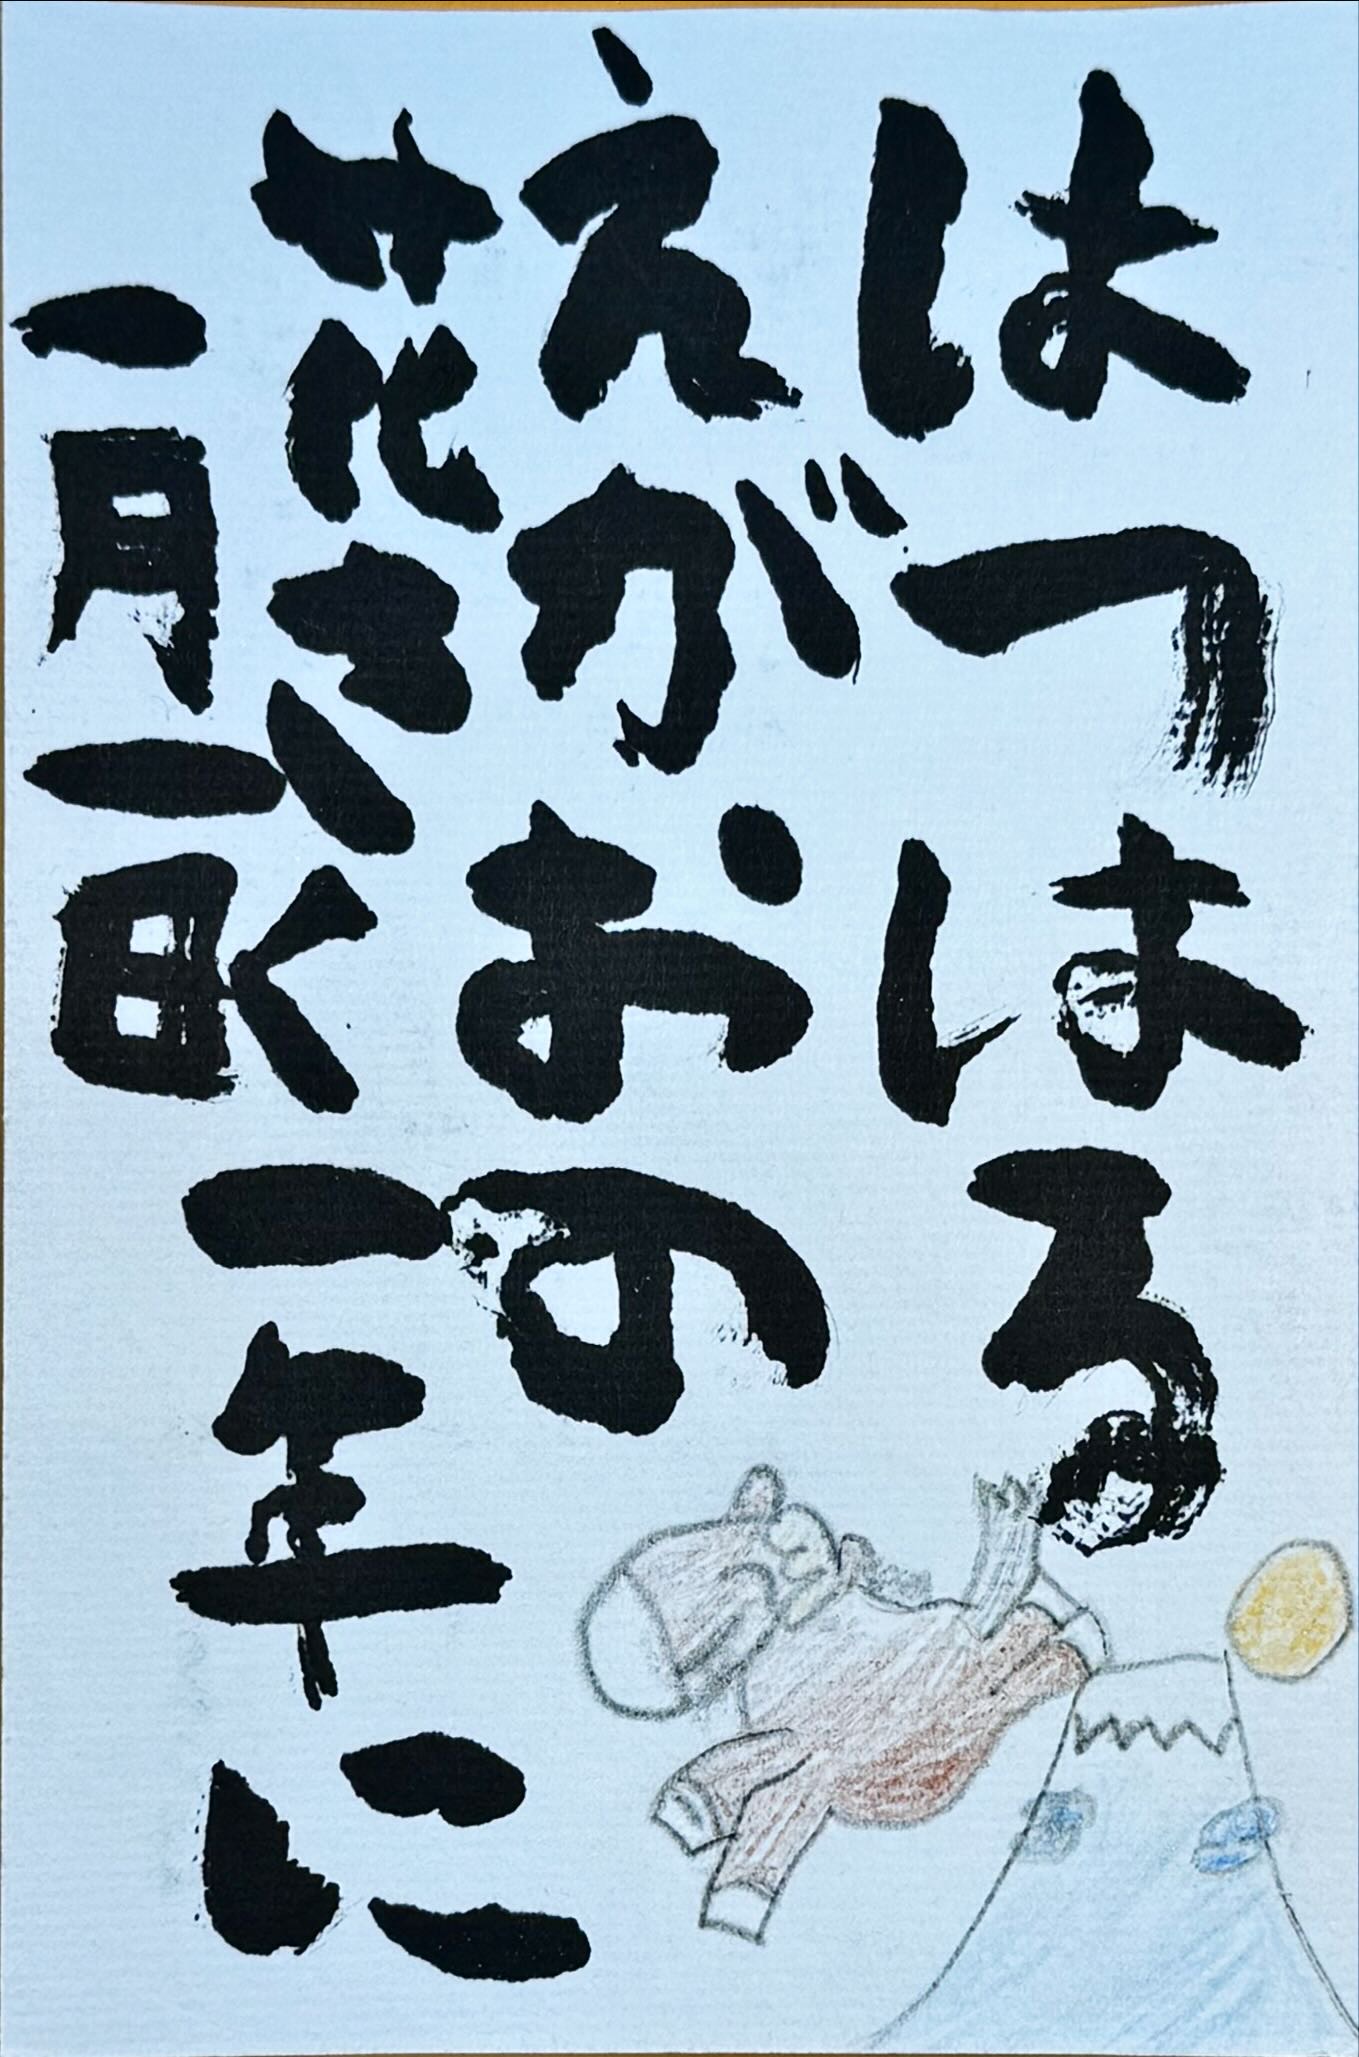 はつはる
えがおの
花さく一年に
一月一日